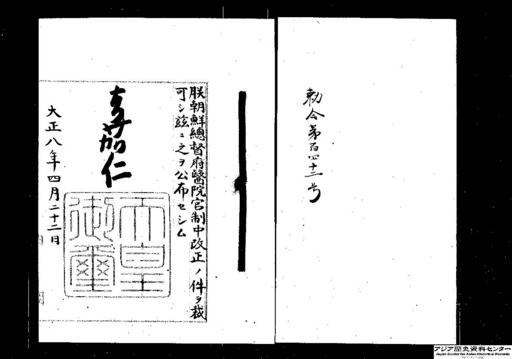 勅令第百四十三号
朕朝鮮總督府醫院官制中改正ノ件ヲ裁
可シ茲ニ之ヲ公布セシム
嘉仁
天皇
御璽
大正八年四月二十三日
アジア歴史資料センター
Japan Center for Asian Historical Records